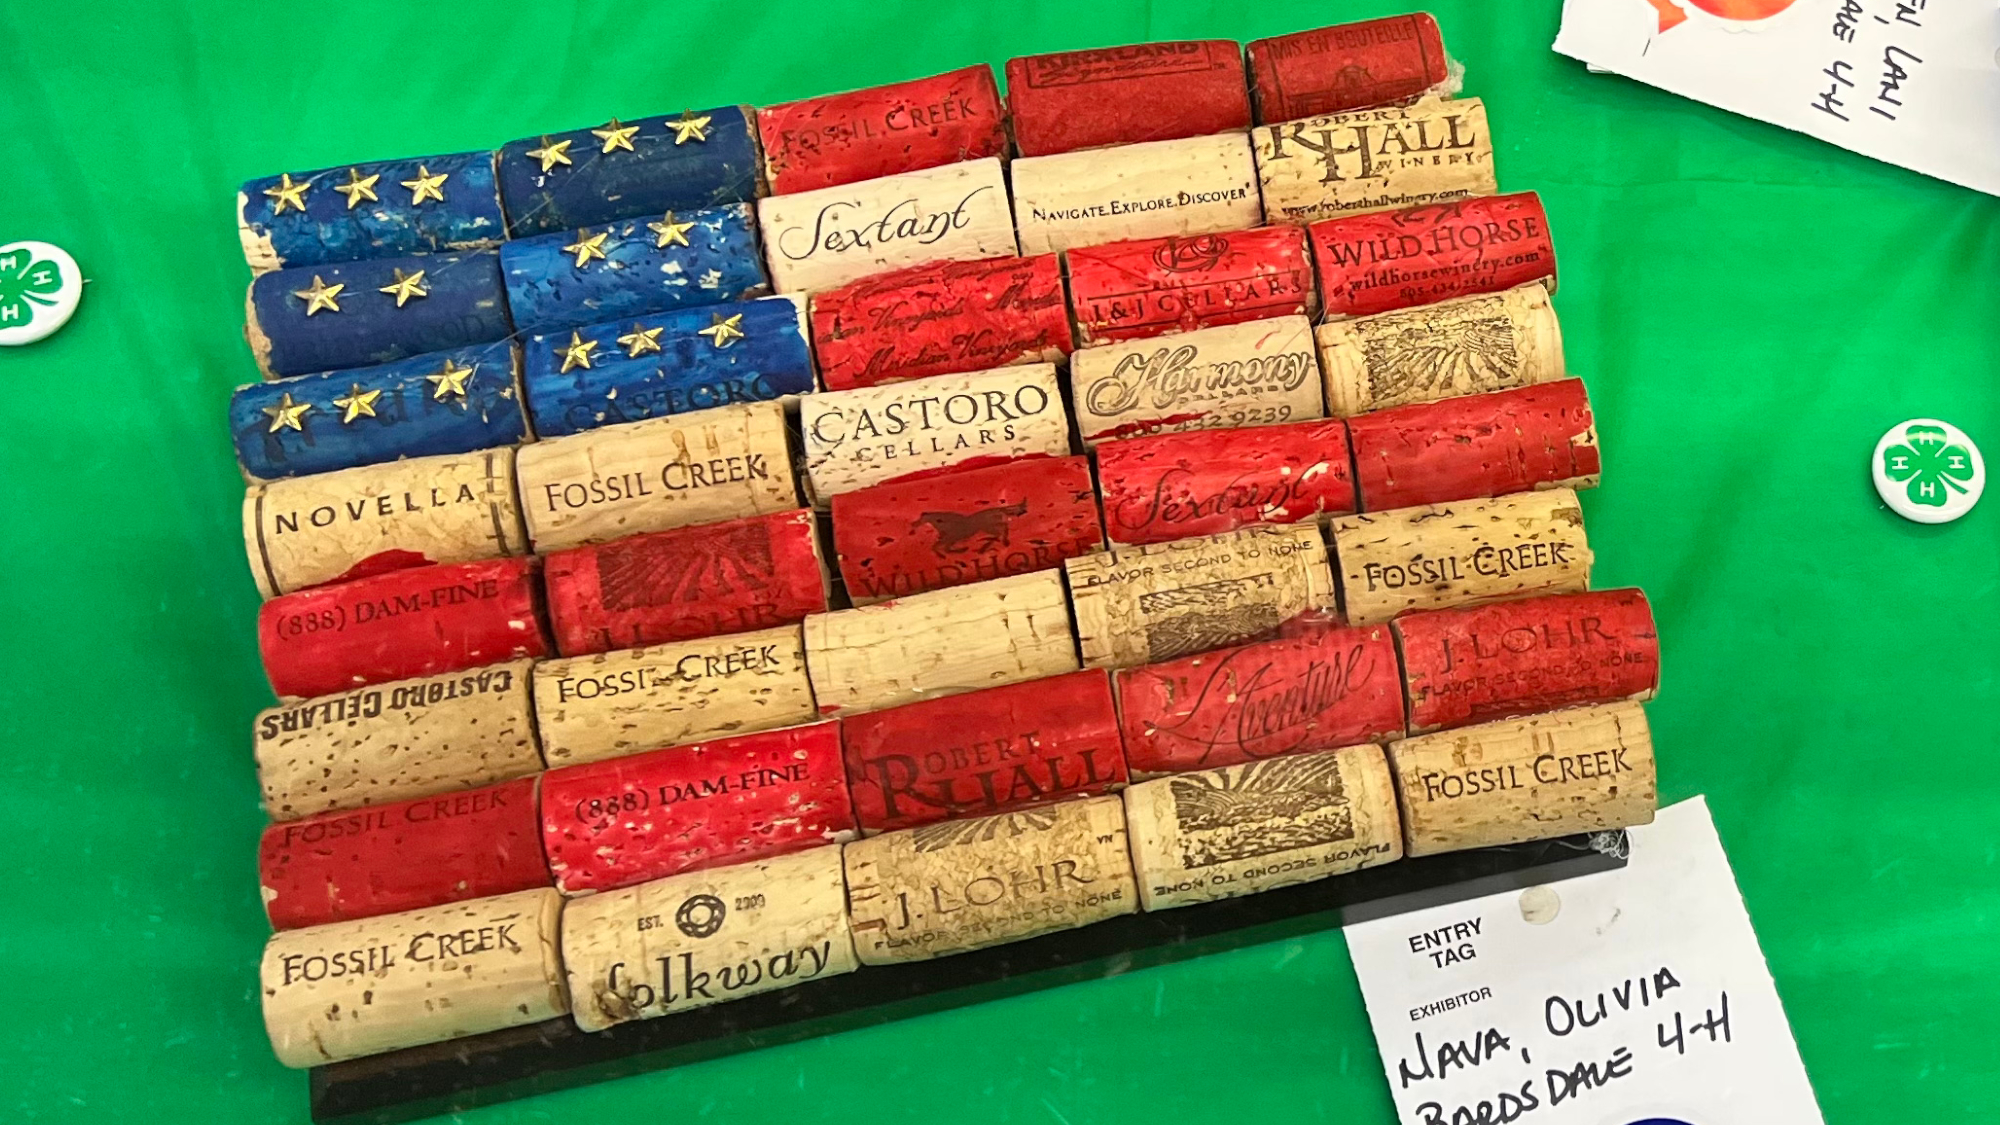 FOSSIL CREEK
KIRKLAND
Signature
MIS EN BOUTEILLE
Sextant
NAVIGATE.EXPLORE.DISCOVER
ROBERT
HALL
WINERY
www.roberthallwinery.com
Meridian Vineyards
J&J CELLARS
WILD HORSE
wildhorsewinery.com
805-434-2541
CASTORO
CASTORO
CELLARS
Harmony
CELLARS
800 432 9239
NOVELLA
FOSSIL CREEK
WILD HORSE
Sextant
(888) DAM-FINE
J. LOHR
J. LOHR
FLAVOR SECOND TO NONE
FOSSIL CREEK
CASTORO CELLARS
FOSSIL CREEK
ROBERT
HALL
L'Aventure
J. LOHR
FLAVOR SECOND TO NONE
FOSSIL CREEK
(888) DAM-FINE
FOSSIL CREEK
EST. 2009
folkway
J. LOHR
FLAVOR SECOND TO NONE
FLAVOR SECOND TO NONE
FOSSIL CREEK
H H H
H H H
4-H
ENTRY
TAG
EXHIBITOR
NAVA, OLIVIA
BARDSDALE 4-H